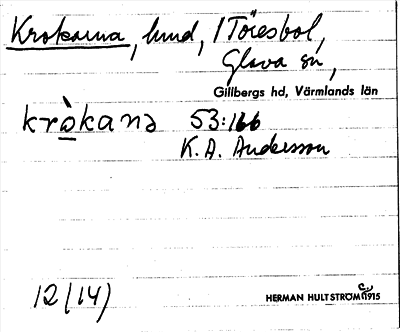 Krokarna, lund, 1 Töresbol,
Glava sn,
Gillbergs hd, Värmlands län
kròkanə 53:166
K. A. Andersson
12 (14)
HERMAN HULTSTRÖM 1915